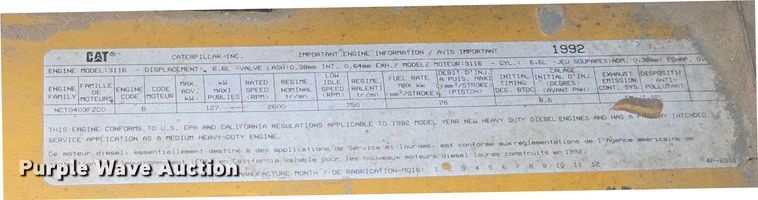 CAT CATERPILLAR INC. IMPORTANT ENGINE INFORMATION / AVIS IMPORTANT 1992
ENGINE MODEL:3116 - DISPLACEMENT: 6.6L -VALVE LASH:0.38mm INT. 0.64mm EXH./ MODELE MOTEUR:3116 - CYL.: 6.6L -JEU SOUPAPES:ADM. 0.38mm: ESHAP. 0.
ENGINE FAMILY FAMILLE DE MOTEURS ENGINE CODE CODE MOTEUR MAX. ADV. kW kW MAXI PUBLIES RATED SPEED (RPM) REGIME NOMINAL tr/mn LOW IDLE SPEED (RPM) REGIME RALENTI tr/mn FUEL RATE MAX kW mm³/STROKE DEBIT D'INJ. A PUIS. MAXI. (mm³/STROKE) (PISTON) INITIAL TIMING (DEG. BTDC) CALAGE INITIAL D'INJ. (DEGRES) (AVANT PMH) EXHAUST EMISSION CONT. SYS. DISPOSITIF ANTI- POLLUTANT
NCT0403FZC0 8 127 2600 750 78 8.6
THIS ENGINE CONFORMS TO U.S. EPA AND CALIFORNIA REGULATIONS APPLICABLE TO 1992 MODEL YEAR NEW HEAVY DUTY DIESEL ENGINES AND HAS A PRIMARY INTENDED
SERVICE APPLICATION AS A MEDIUM HEAVY-DUTY ENGINE.
Ce moteur diesel, essentiellement destiné à des applications de Service mi-lourdes, est conforme aux réglementations de l'Agence américaine
(EPA) en Californie valable pour les nouveaux moteurs diesel lourds construits en 1992.
MANUFACTURE MONTH /-DE FABRICATION-MOIS: 1 3 4 5 6 7 8 9 10 11 12
Purple Wave Auction